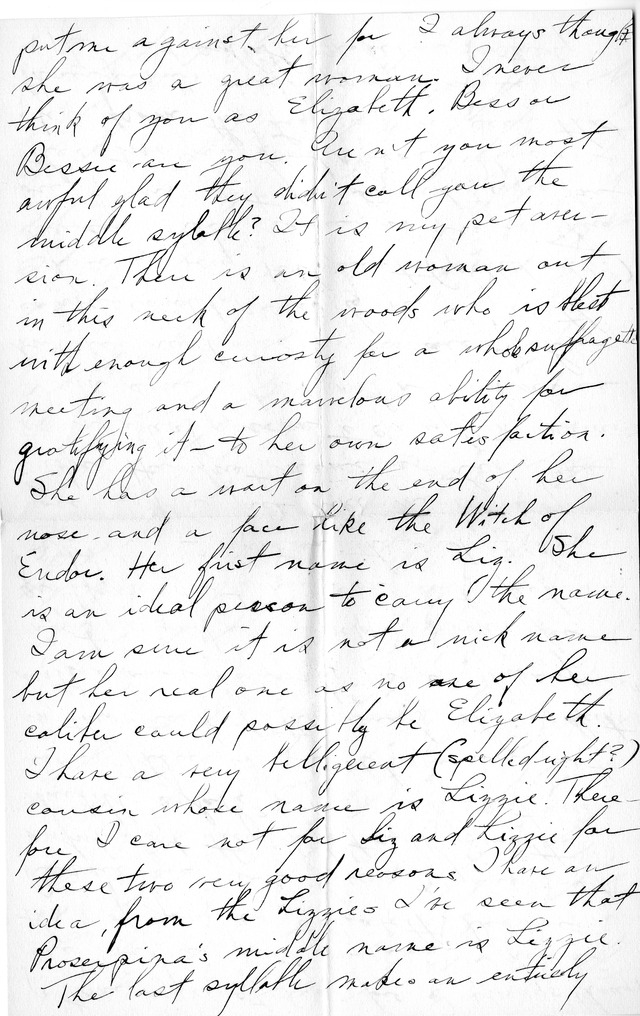 put me against her for I always thought
she was a great woman. I never
think of you as Elizabeth. Bess or
Bessie are you. Aren't you most
awful glad they didn't call you the
middle syllable? It is my pet aver-
sion. There is an old woman out
in this neck of the woods who is blest
with enough curiosty for a whole suffragette
meeting and a marvelous ability for
gratifying it - to her own satisfaction.
She has a wart on the end of her
nose and a face like the Witch of
Endor. Her first name is Liz. She
is an ideal person to carry the name.
I am sure it is not a nick name
but her real one as no one of her
caliber could possibly be Elizabeth.
I have a very belligerent (spelled right?)
cousin whose name is Lizzie. There-
fore I care not for Liz and Lizzie for
these two very good reasons I have an
idea, from the Lizzies I've seen that
Proserpina's middle name is Lizzie.
The last syllable makes an entirely